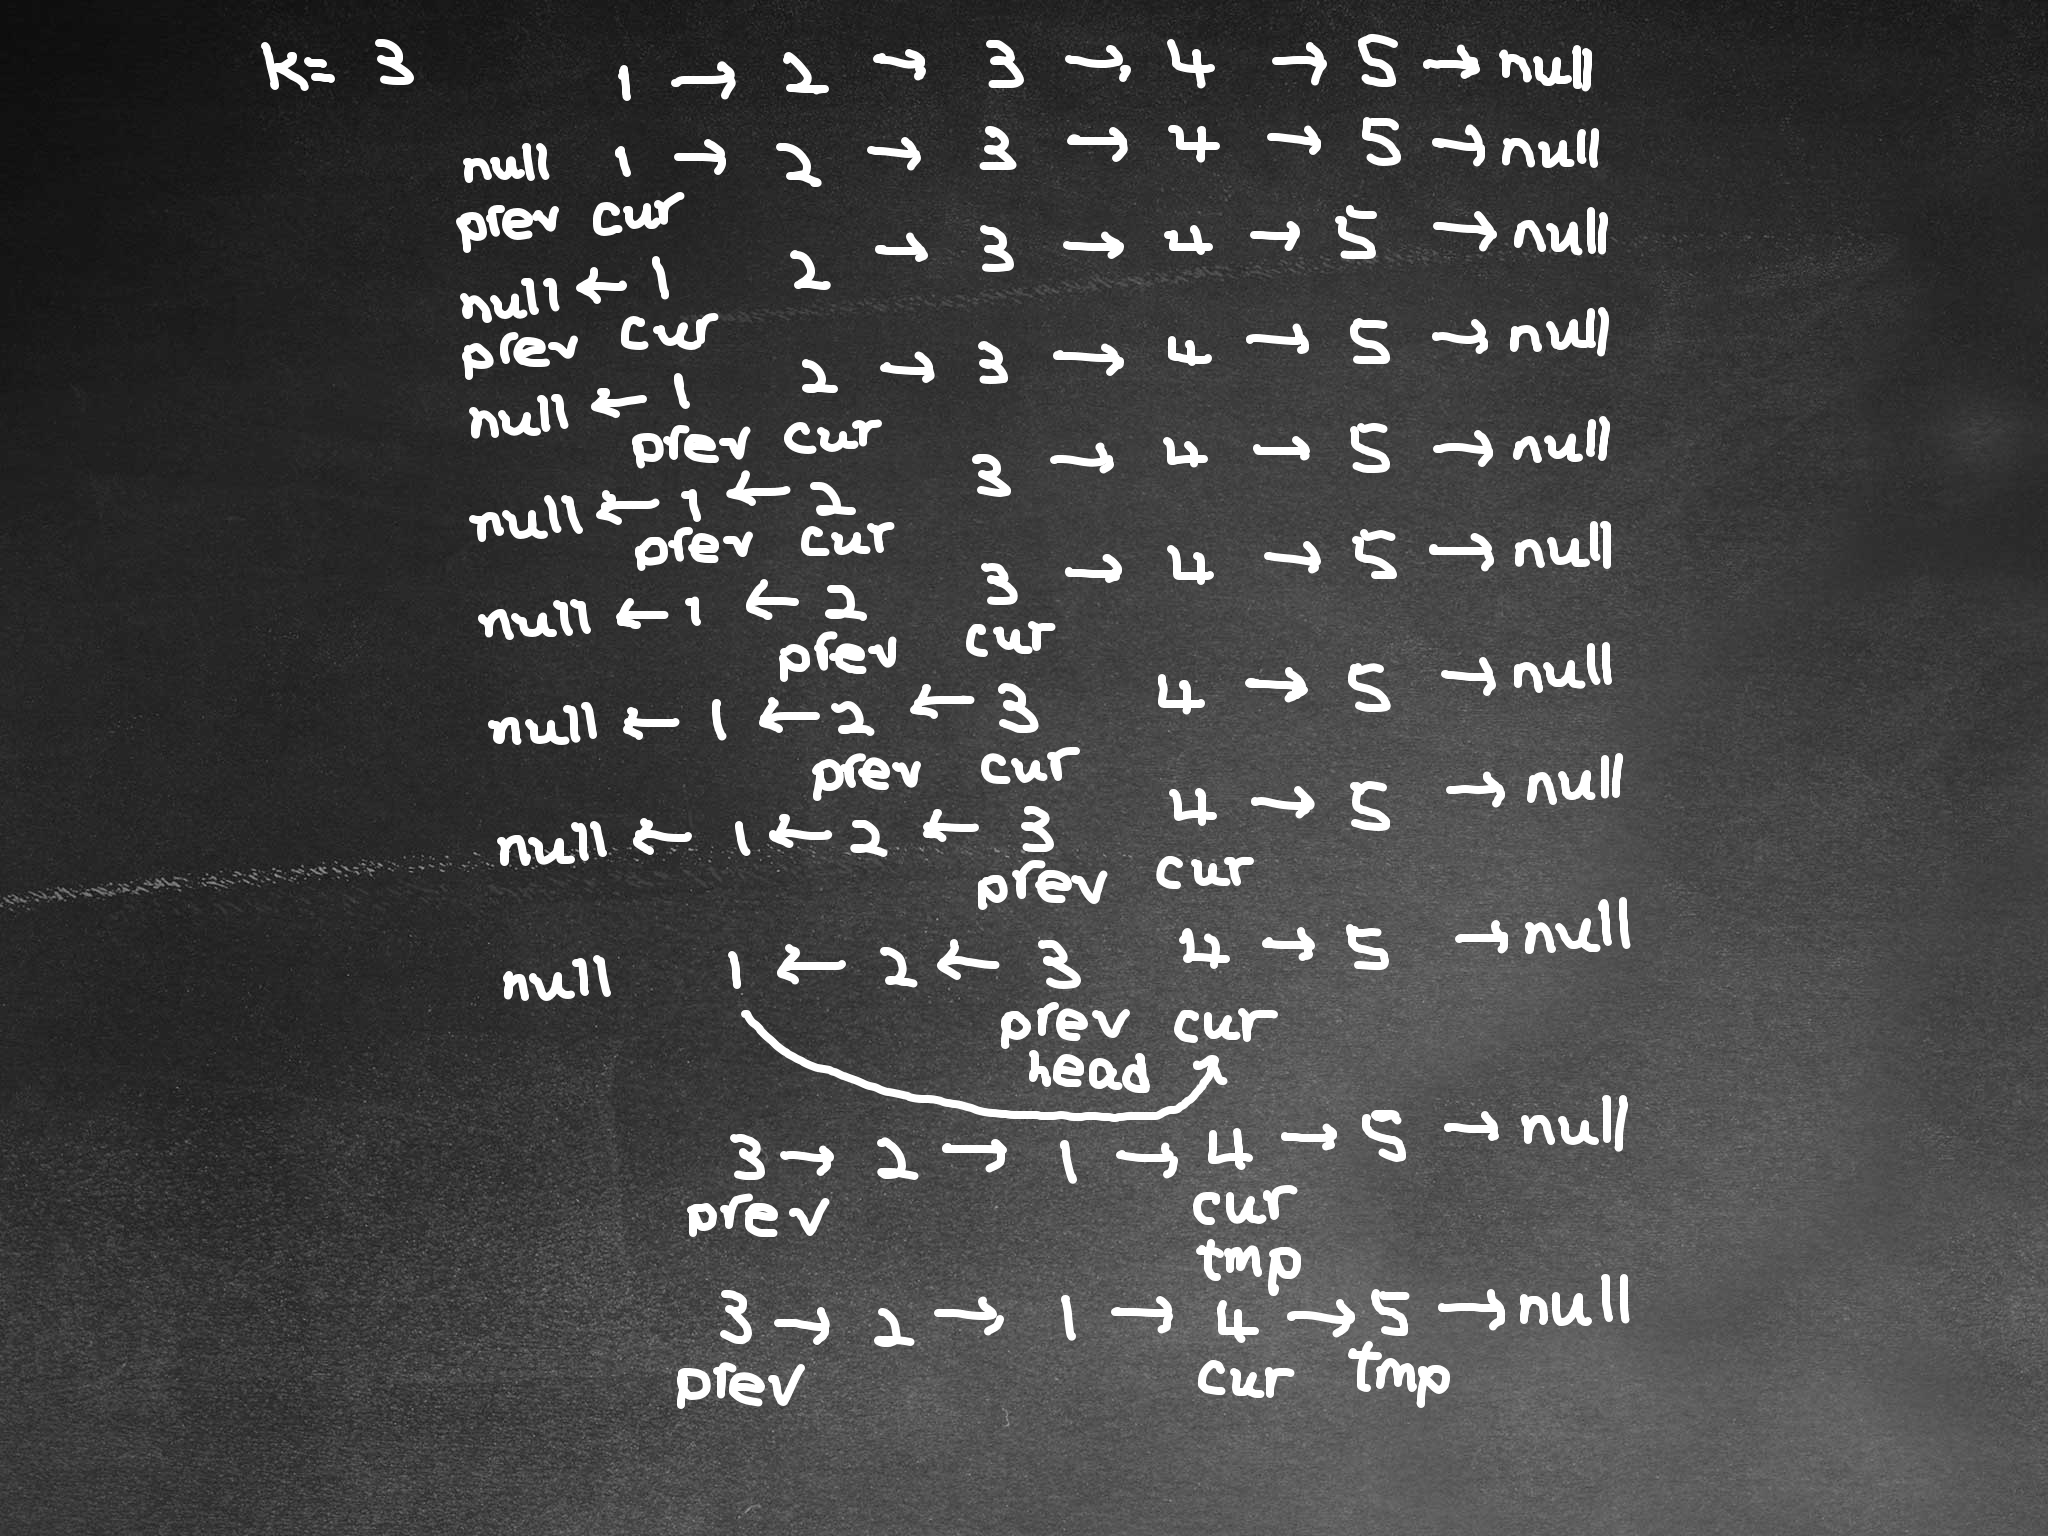 k= 3 1 → 2 → 3 → 4 → 5 → null
null 1 → 2 → 3 → 4 → 5 → null
prev cur
null ← 1 2 → 3 → 4 → 5 → null
prev cur
null ← 1 2 → 3 → 4 → 5 → null
prev cur
null ← 1 ← 2 3 → 4 → 5 → null
prev cur
null ← 1 ← 2 3 → 4 → 5 → null
prev cur
null ← 1 ← 2 ← 3 4 → 5 → null
prev cur
null ← 1 ← 2 ← 3 4 → 5 → null
prev cur
null 1 ← 2 ← 3 4 → 5 → null
prev cur
head
3 → 2 → 1 → 4 → 5 → null
prev cur
tmp
3 → 2 → 1 → 4 → 5 → null
prev cur tmp